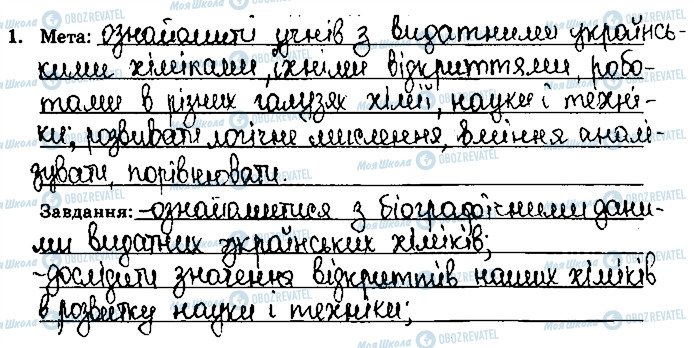 1. Мета: ознайомити учнів з видатними українсь-
кими хіміками, їхніми відкриттями, робо-
тами в різних галузях хімії, науки і техні-
ки, розвивати логічне мислення, вміння аналі-
зувати, порівнювати.
Завдання: -ознайомитися з біографічними дани-
ми видатних українських хіміків;
-дослідити значення відкриттів наших хіміків
в розвитку науки і техніки;